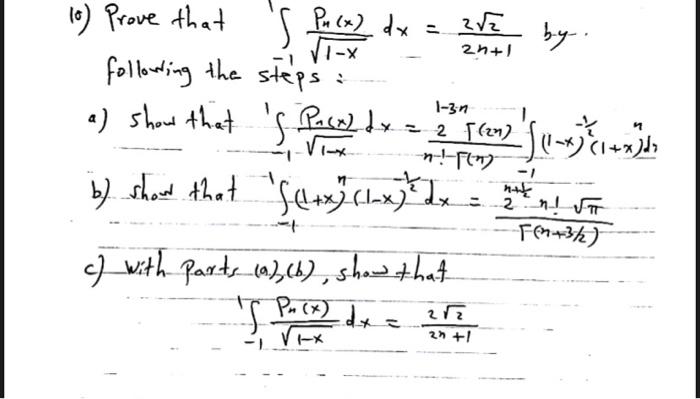 10) Prove that ∫_{-1}^{1} Pn(x)/√(1-x) dx = 2√2/(2n+1) by
following the steps :
a) show that ∫_{-1}^{1} Pn(x)/√(1-x) dx = 2^{1-3n} Γ(2n)/(n! Γ(n)) ∫_{-1}^{1} (1-x)^{-1/2} (1+x)^n dx
b) show that ∫_{-1}^{1} (1+x)^n (1-x)^{-1/2} dx = 2^{n+1/2} n! √π / Γ(n+3/2)
c) with Parts (a), (b), show that
∫_{-1}^{1} Pn(x)/√(1-x) dx = 2√2/(2n+1)